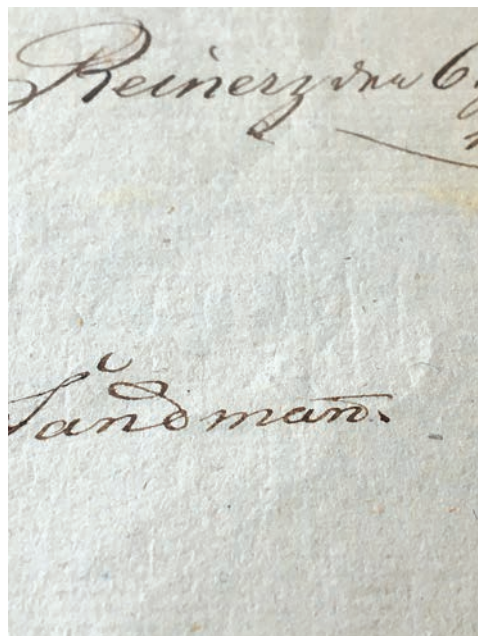 Reinerz den 6
Sandman̄.